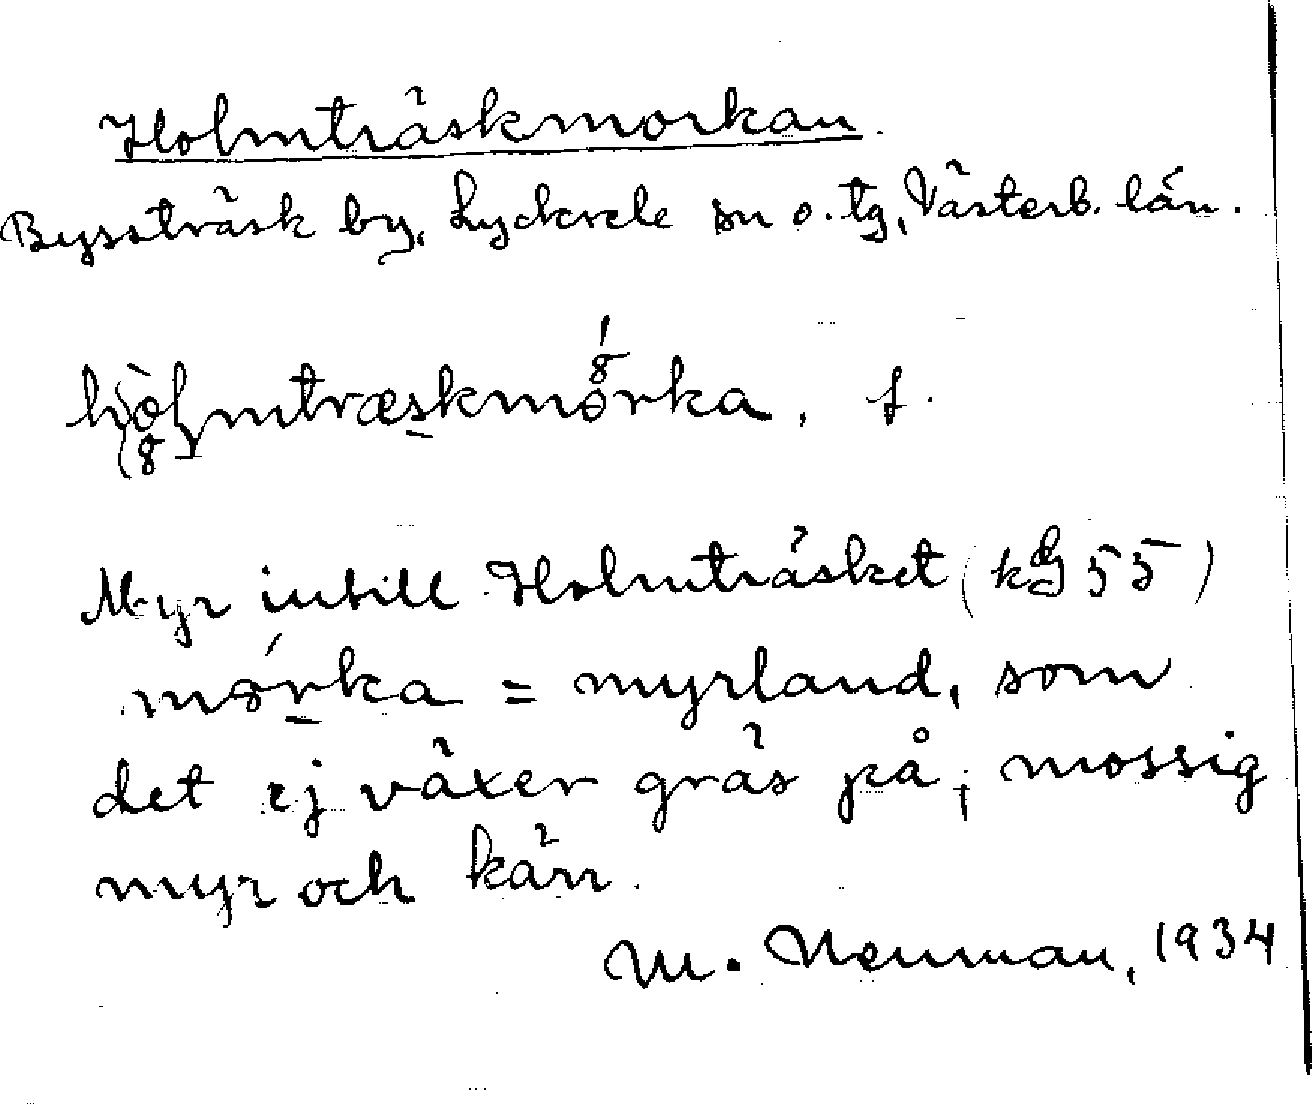 Holmträskmorkan.
Byssträsk by, Lycksele sn o. tg, Västerb. län.
hòlmtræskmórka, f.
Myr intill Holmträsket (kG 55)
mórka = myrland, som
det ej växer gräs på; mossig
myr och kärr.
M. Neuman, 1934